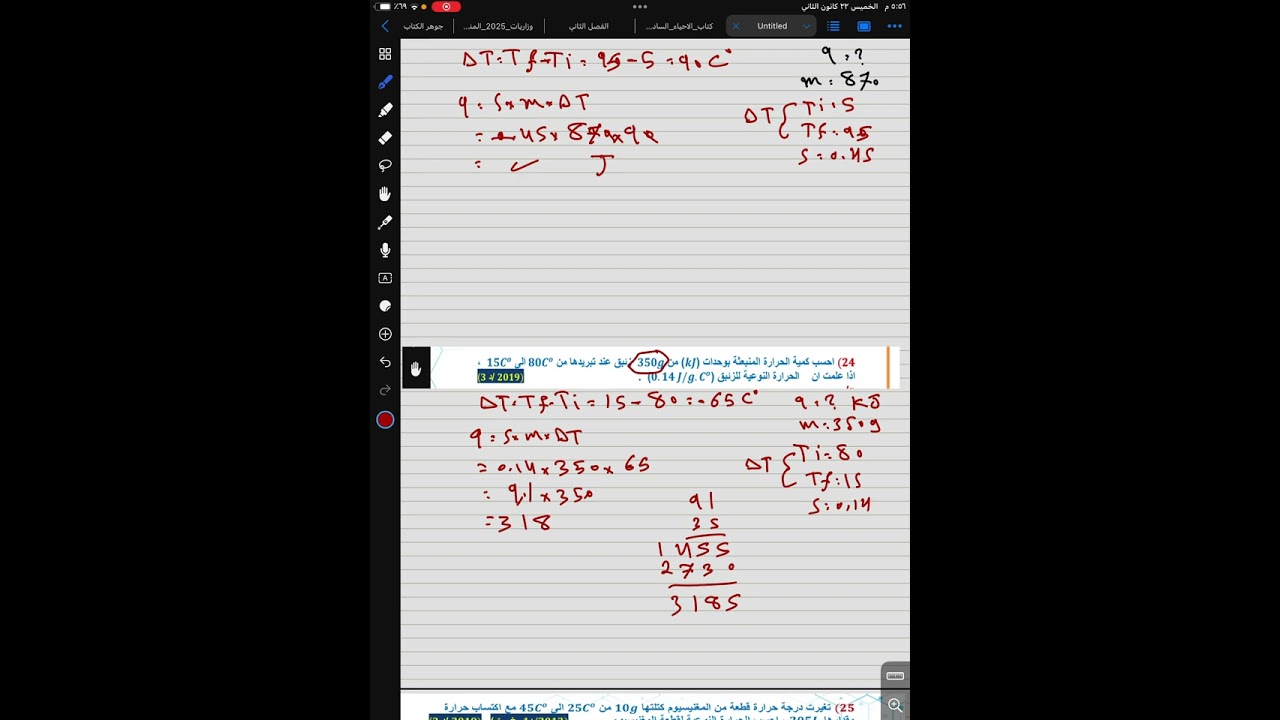 ٥:٥٦ م الخميس ٢٣ كانون الثاني
٦٩٪
جوهر الكتاب
وزاريات_2025_المنـ...
الفصل الثاني
كتاب_الاحياء_السادـ...
Untitled
ΔT = Tf - Ti = 95 - 5 = 90 C°
q = ?
m = 870
q = S × m × ΔT
ΔT { Ti = 5
Tf = 95
= 0.45 × 870 × 90
S = 0.45
= ✓ J
24) احسب كمية الحرارة المنبعثة بوحدات (kJ) من 350g زئبق عند تبريدها من 80C° الى 15C° ،
اذا علمت ان الحرارة النوعية للزئبق (0.14 J/g.C°) . (2019/د3)
ΔT = Tf - Ti = 15 - 80 = -65 C°
q = ? KJ
m = 350g
q = S × m × ΔT
ΔT { Ti = 80
Tf = 15
= 0.14 × 350 × 65
S = 0.14
= 9.1 × 350
= 318
91
35
1455
2730
3185
25) تغيرت درجة حرارة قطعة من المغنيسيوم كتلتها 10g من 25C° الى 45C° مع اكتساب حرارة